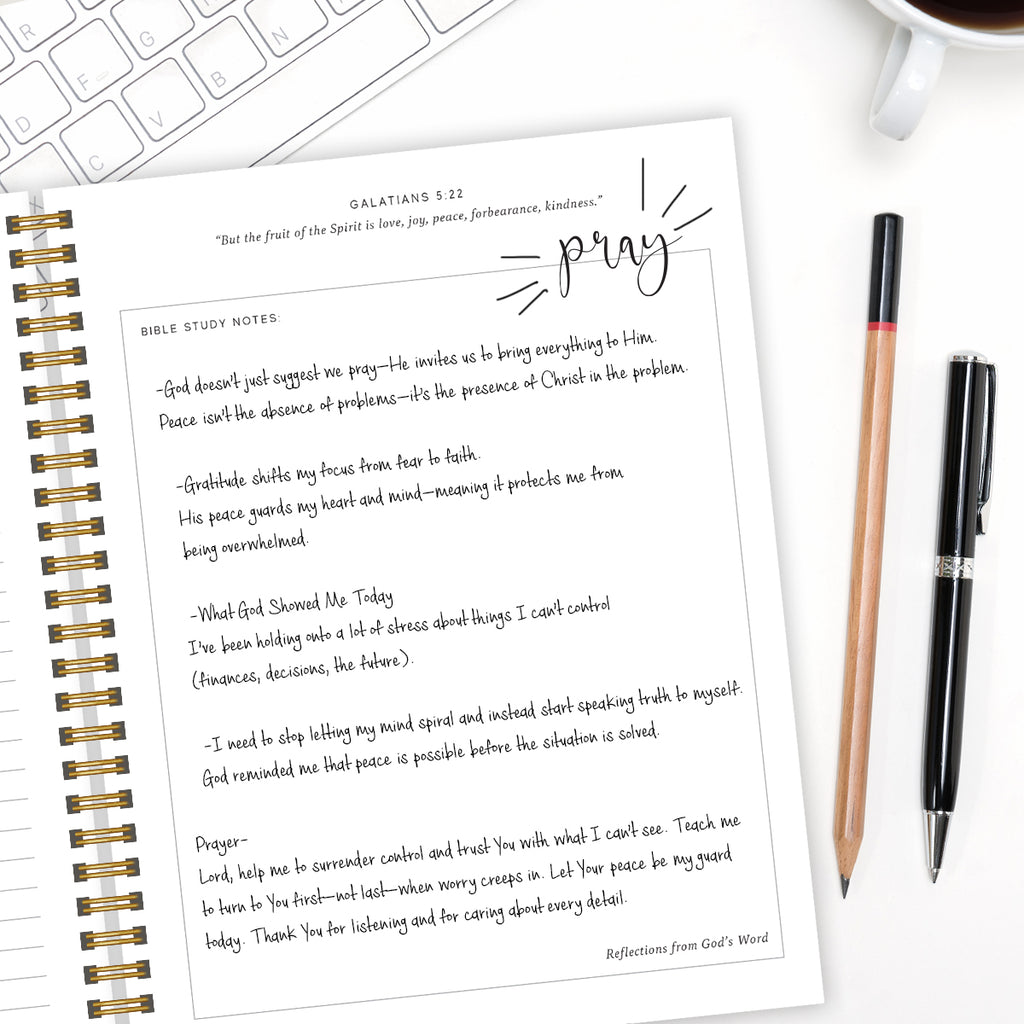 R
G
N
D
F
V
B
C
GALATIANS 5:22
“But the fruit of the Spirit is love, joy, peace, forbearance, kindness.”
pray
BIBLE STUDY NOTES:
-God doesn't just suggest we pray—He invites us to bring everything to Him.
Peace isn't the absence of problems—it's the presence of Christ in the problem.
-Gratitude shifts my focus from fear to faith.
His peace guards my heart and mind—meaning it protects me from
being overwhelmed.
-What God Showed Me Today
I've been holding onto a lot of stress about things I can't control
(finances, decisions, the future).
-I need to stop letting my mind spiral and instead start speaking truth to myself.
God reminded me that peace is possible before the situation is solved.
Prayer-
Lord, help me to surrender control and trust You with what I can't see. Teach me
to turn to You first—not last—when worry creeps in. Let Your peace be my guard
today. Thank You for listening and for caring about every detail.
Reflections from God's Word